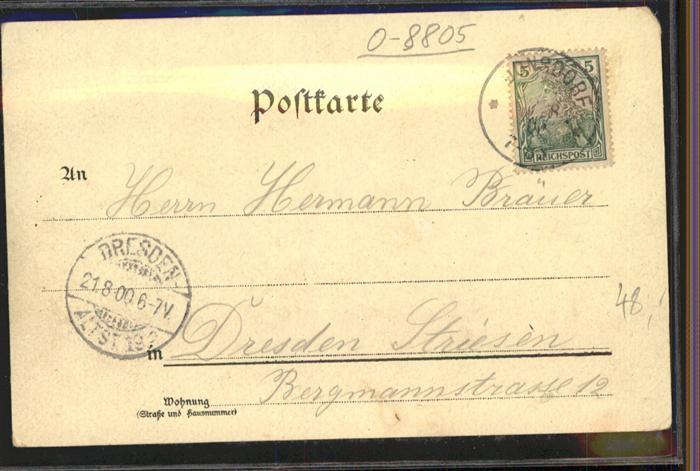 O-8805
Postkarte
5 5
REICHSPOST
An Herrn Hermann Brauer
DRESDEN-
21.8.00.6-7V.
ALTST.
48,
in Dresden Striesen
Bergmannstrasse 12
Wohnung
(Straße und Hausnummer)